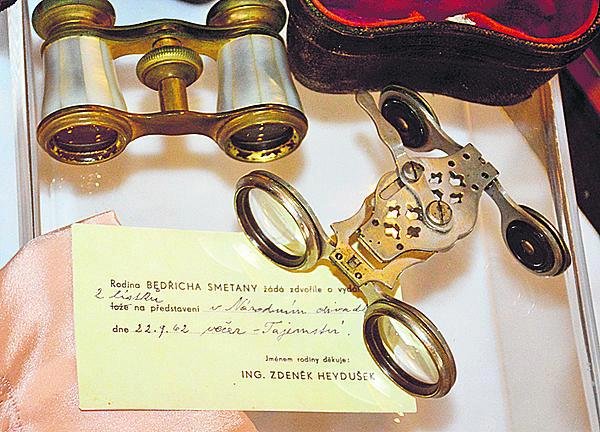 Rodina BEDŘICHA SMETANY žádá zdvořile o vydá
2 lístku
lože na představení v Národním divad
dne 22.9.62 večer - Tajemství.
Jménem rodiny děkuje:
ING. ZDENĚK HEYDUŠEK